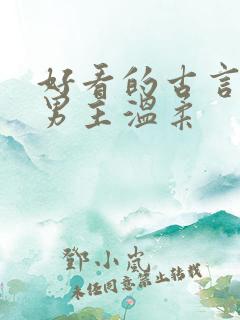 好看的古言
男主温柔
邓小岚
未经同意禁止转载